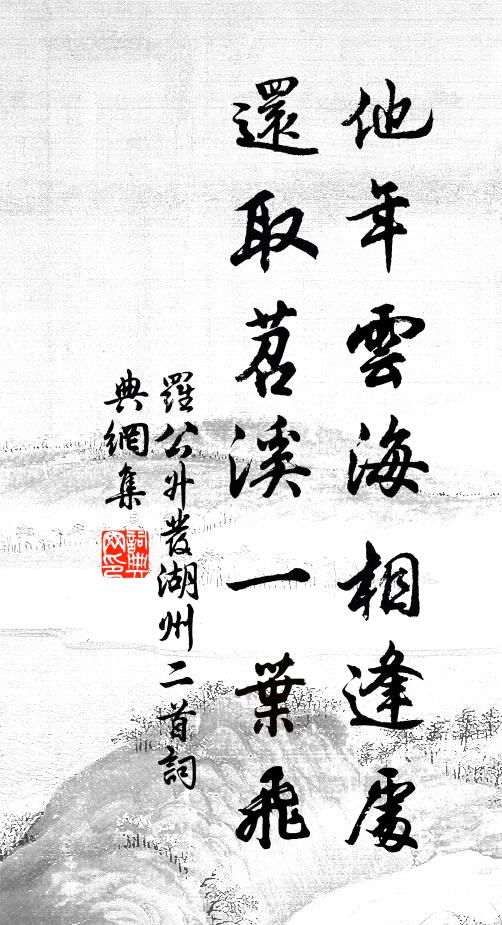 他年雲海相逢處
還取苕溪一葉飛
羅公升發湖州二首詞
典網集
詞典
网印